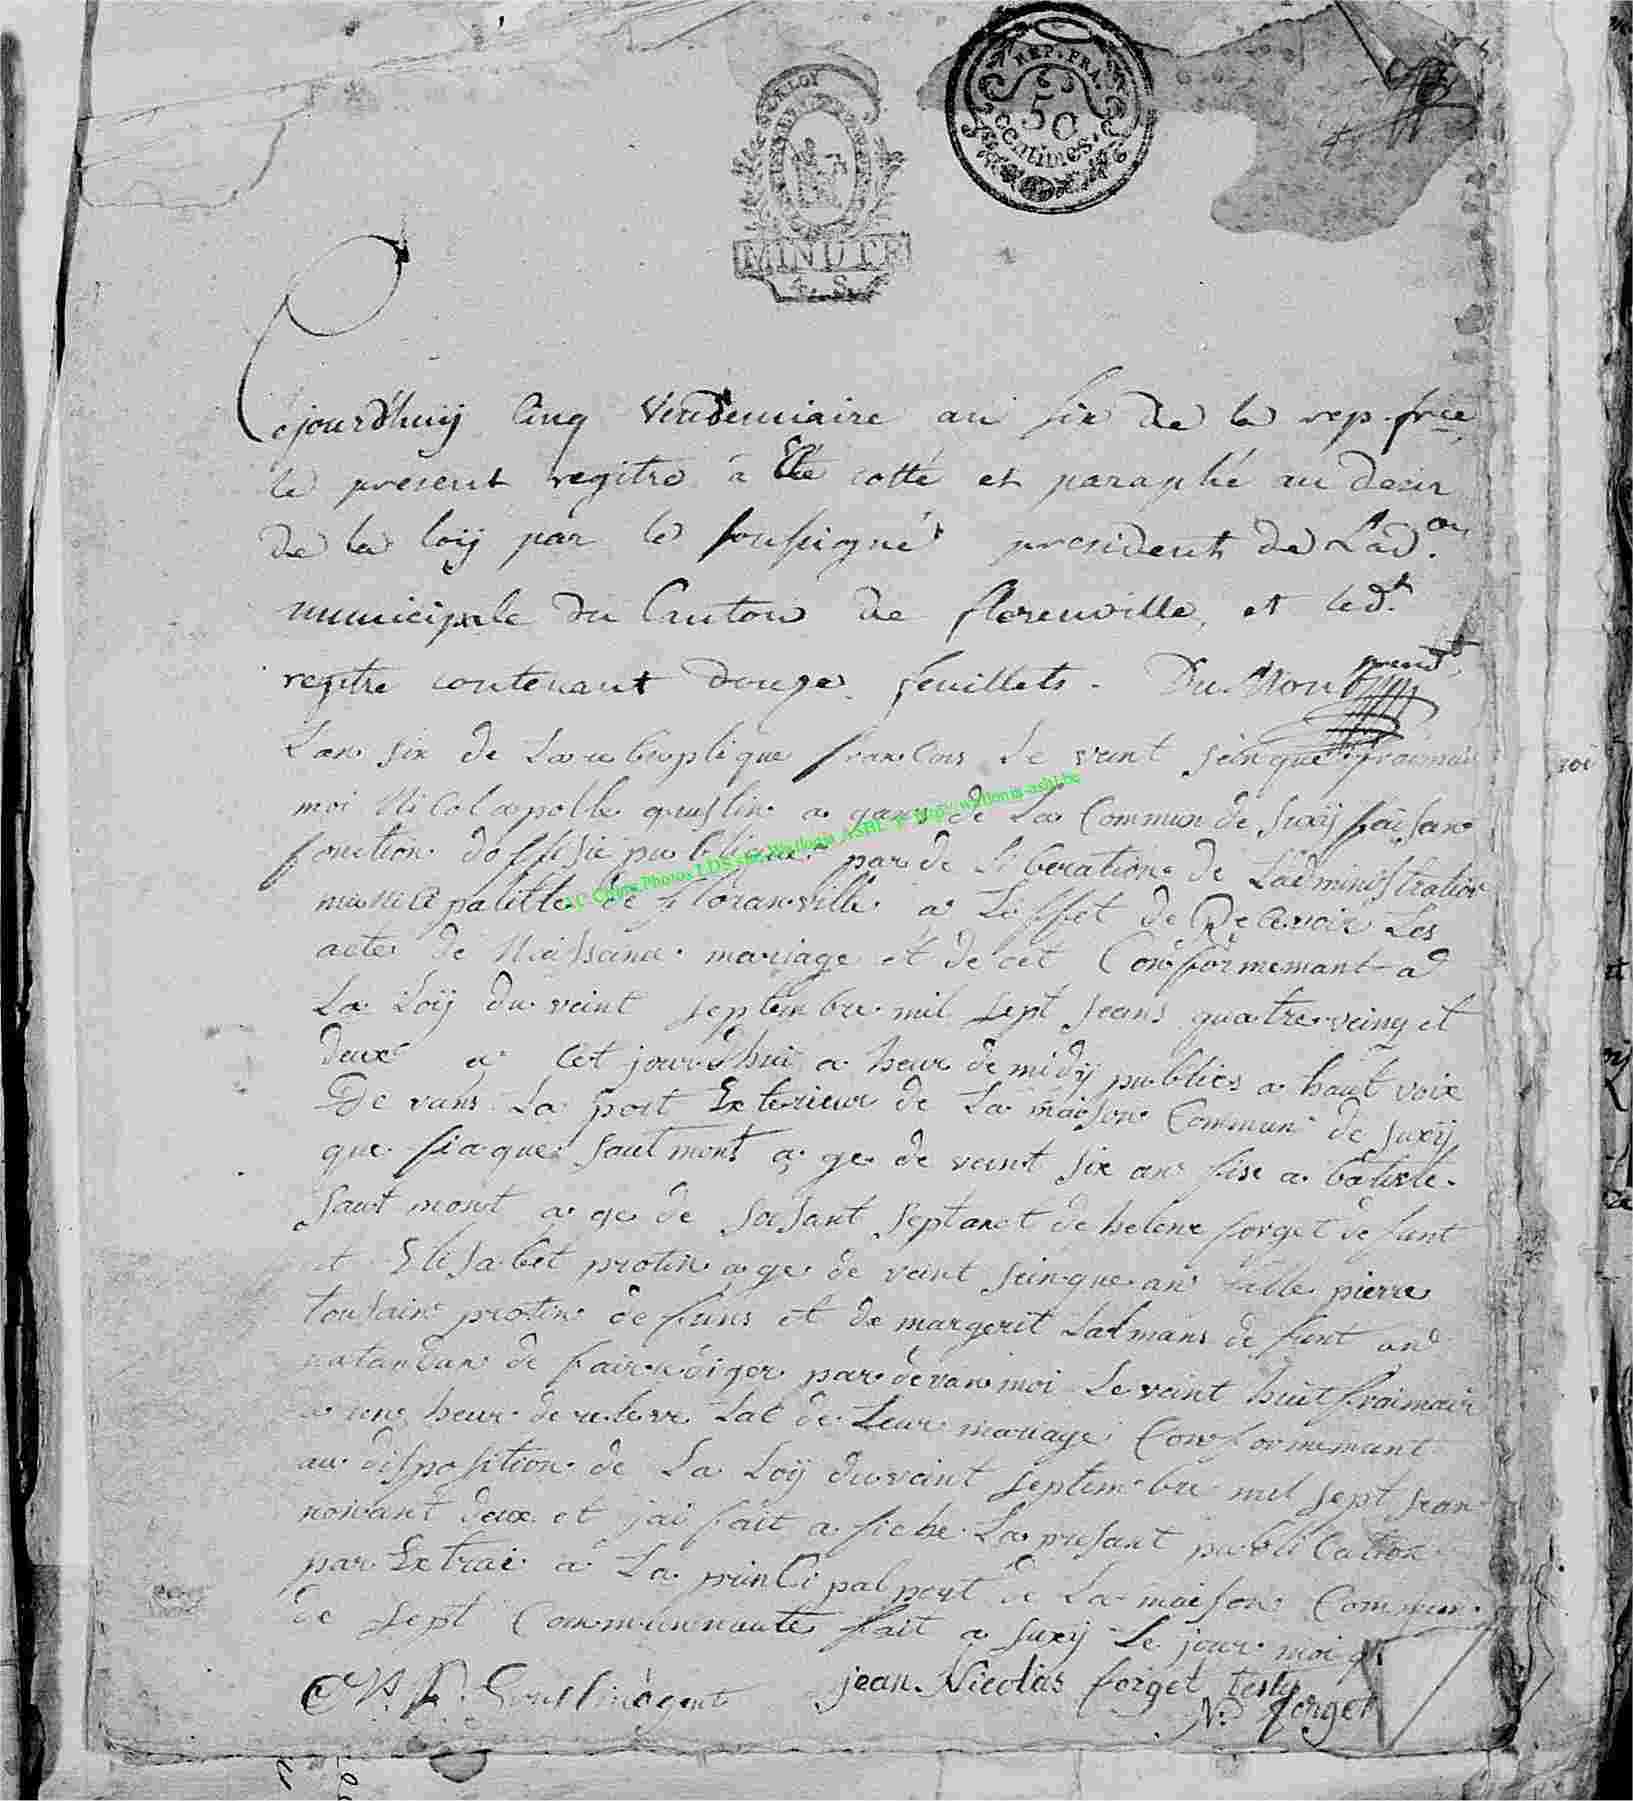 REP. FRA.
50
centimes.
LA LOY
MINUTE
Cejourd'huij Cinq Vendemiaire an six de la rep. frce
le present regitre à Eté cotté et paraphé au desir
de la loÿ par le sousigné president de Lad.on
municipale du Canton de florenville, et led.t
regitre contenant douze feuillets. DuMont presdt
Lan six de La rebuplique francois Le vent seinque fraimair
moi Nicola polle gruslin a gans de La Commun de suxÿ faisan
fonction doffisié publique par de liberation de Ladministration
municipalitte de floranville a Leffet de Recevoir Les
acte de Naissance mariage et de cet Conformemant a
La Loÿ du veint septembre mil sept seans quatre veing et
deux a Cet jourdhui a heur de midÿ publies a haut voix
De vans La port Exterieur de La maison Commun de suxÿ
que siaque sautmont a ge de veint six an fise a batiste
saut mont a ge de soisant septanet de helene forget defunt
et Elisabet protin a ge de veint seinque an fille pierre
tousain protin de funs et de margerit Lalmans de funt
de fair rediger par devan moi Le veint huit fraimair
a un heur de releve Lac de Leur mariage Conformemant
au disposition de La Loÿ du veint septembre mil sept sean
nonant deux et jai fait a fiche La presant publication
par Extrai a La prinCipal port de La maison Commun
de sept Communaute fait a suxÿ Le jour moi
N. P. Gruslin agent jean Nicolas forget
N: forget